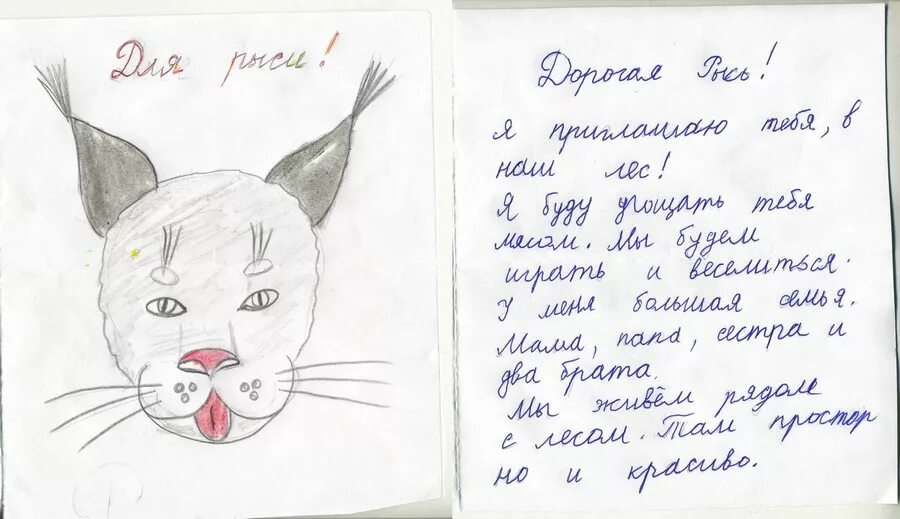 Для рыси!
Дорогая Рысь!
Я приглашаю тебя, в
наш лес!
Я буду угощать тебя
мясом. Мы будем
играть и веселиться.
У меня большая семья.
Мама, папа, сестра и
два брата.
Мы живём рядом
с лесом. Там простор
но и красиво.